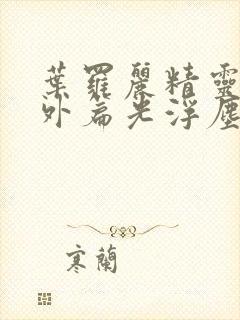 葉羅麗精靈
外扁光浮塵
寒蘭